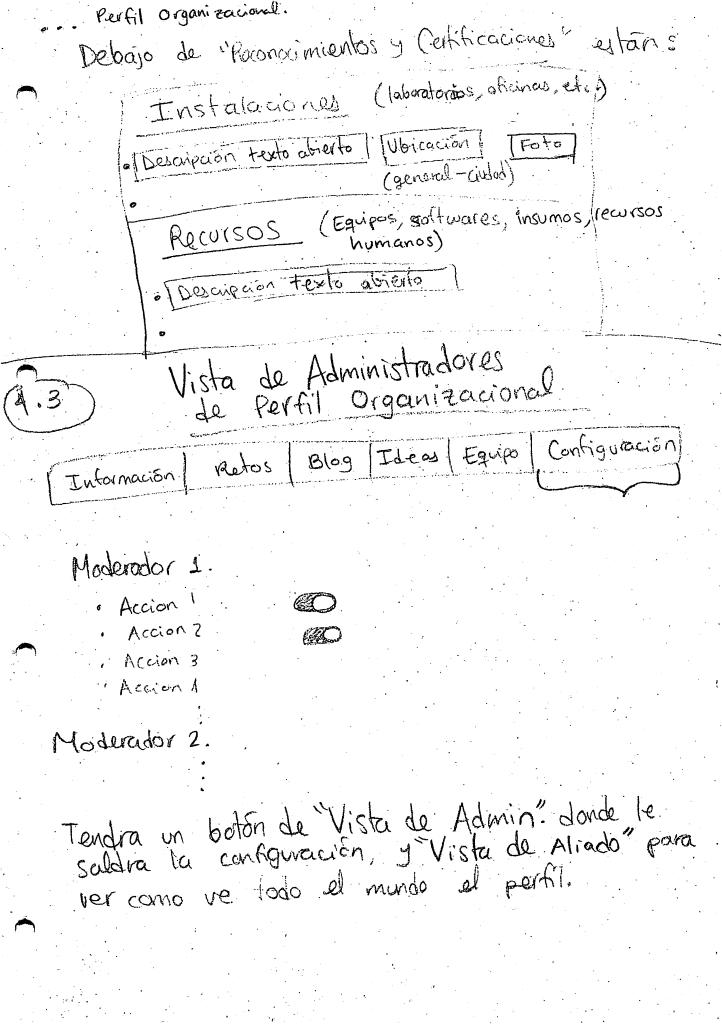 ... Perfil Organizacional.
Debajo de "Reconocimientos y Certificaciones" están:
Instalaciones (laboratorios, oficinas, etc.)
• Descripción texto abierto Ubicación Foto
(general-ciudad)
•
Recursos (Equipos, softwares, insumos, recursos
humanos)
• Descripción texto abierto
•
4.3 Vista de Administradores
de Perfil Organizacional
Información Retos Blog Ideas Equipo Configuración
Moderador 1.
• Accion 1
• Accion 2
• Accion 3
• Accion 4
Moderador 2.
Tendra un botón de "Vista de Admin". donde le
saldra la configuración, y "Vista de Aliado" para
ver como ve todo el mundo el perfil.